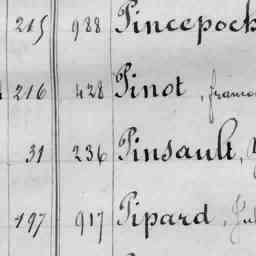 215 988 Pincepoch
216 428 Pinot, franco
31 236 Pinsault,
197 917 Pipard, Jul